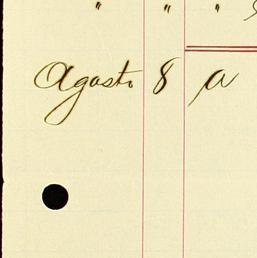 " " "
Agosto 8 a